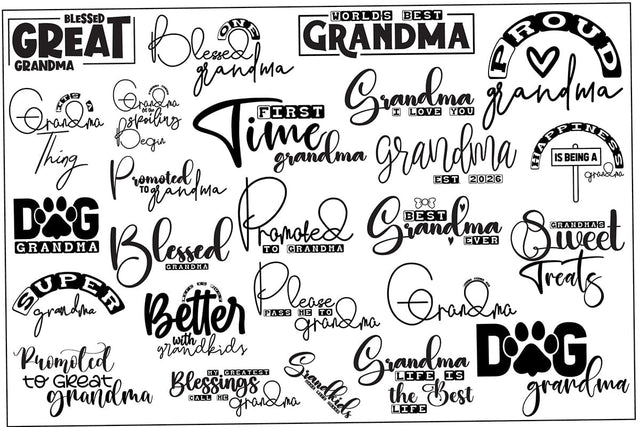 BLESSED
GREAT
GRANDMA
Blessed
ONE
grandma
WORLDS BEST
GRANDMA
PROUD
grandma
IT'S A
Grandma
Thing
Grandma
Spoiling
Begin
FIRST
Time
grandma
Grandma
I LOVE YOU
grandma
EST 2026
HAPPINESS
IS BEING A
grandma
Promoted
TO grandma
DOG
GRANDMA
Blessed
GRANDMA
Promoted
TO GRANDMA
BEST
Grandma
EVER
GRANDMAS
Sweet
Treats
SUPER
grandma
Better
with
grandkids
Please
PASS ME TO
grandma
Grandma
DOG
grandma
Promoted
to Great
grandma
MY GREATEST
Blessings
CALL ME
grandma
Grandkids
Grandma
LIFE IS
the Best
LIFE